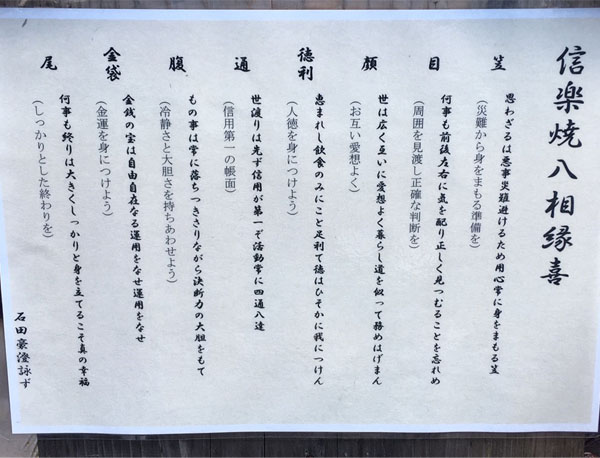 信楽焼八相縁喜
笠
思わざるは悪事災難避けるため用心常に身をまもる笠
(災難から身をまもる準備を)
目
何事も前後左右に気を配り正しく見つむることを忘れめ
(周囲を見渡し正確な判断を)
顔
世は広く互いに愛想よく暮らし道を似って務めはげまん
(お互い愛想よく)
徳利
恵まれし飲食のみにこと足利て徳はひそかに我につけん
(人徳を身につけよう)
通
世渡りは先ず信用が第一ぞ活動常に四通八達
(信用第一の帳面)
腹
もの事は常に落ちつきさりながら決断力の大胆をもて
(冷静さと大胆さを持ちあわせよう)
金袋
金銭の宝は自由自在なる運用をなせ運用をなせ
(金運を身につけよう)
尾
何事も終りは大きくしっかりと身を立てるこそ真の幸福
(しっかりとした終わりを)
石田豪澄詠ず